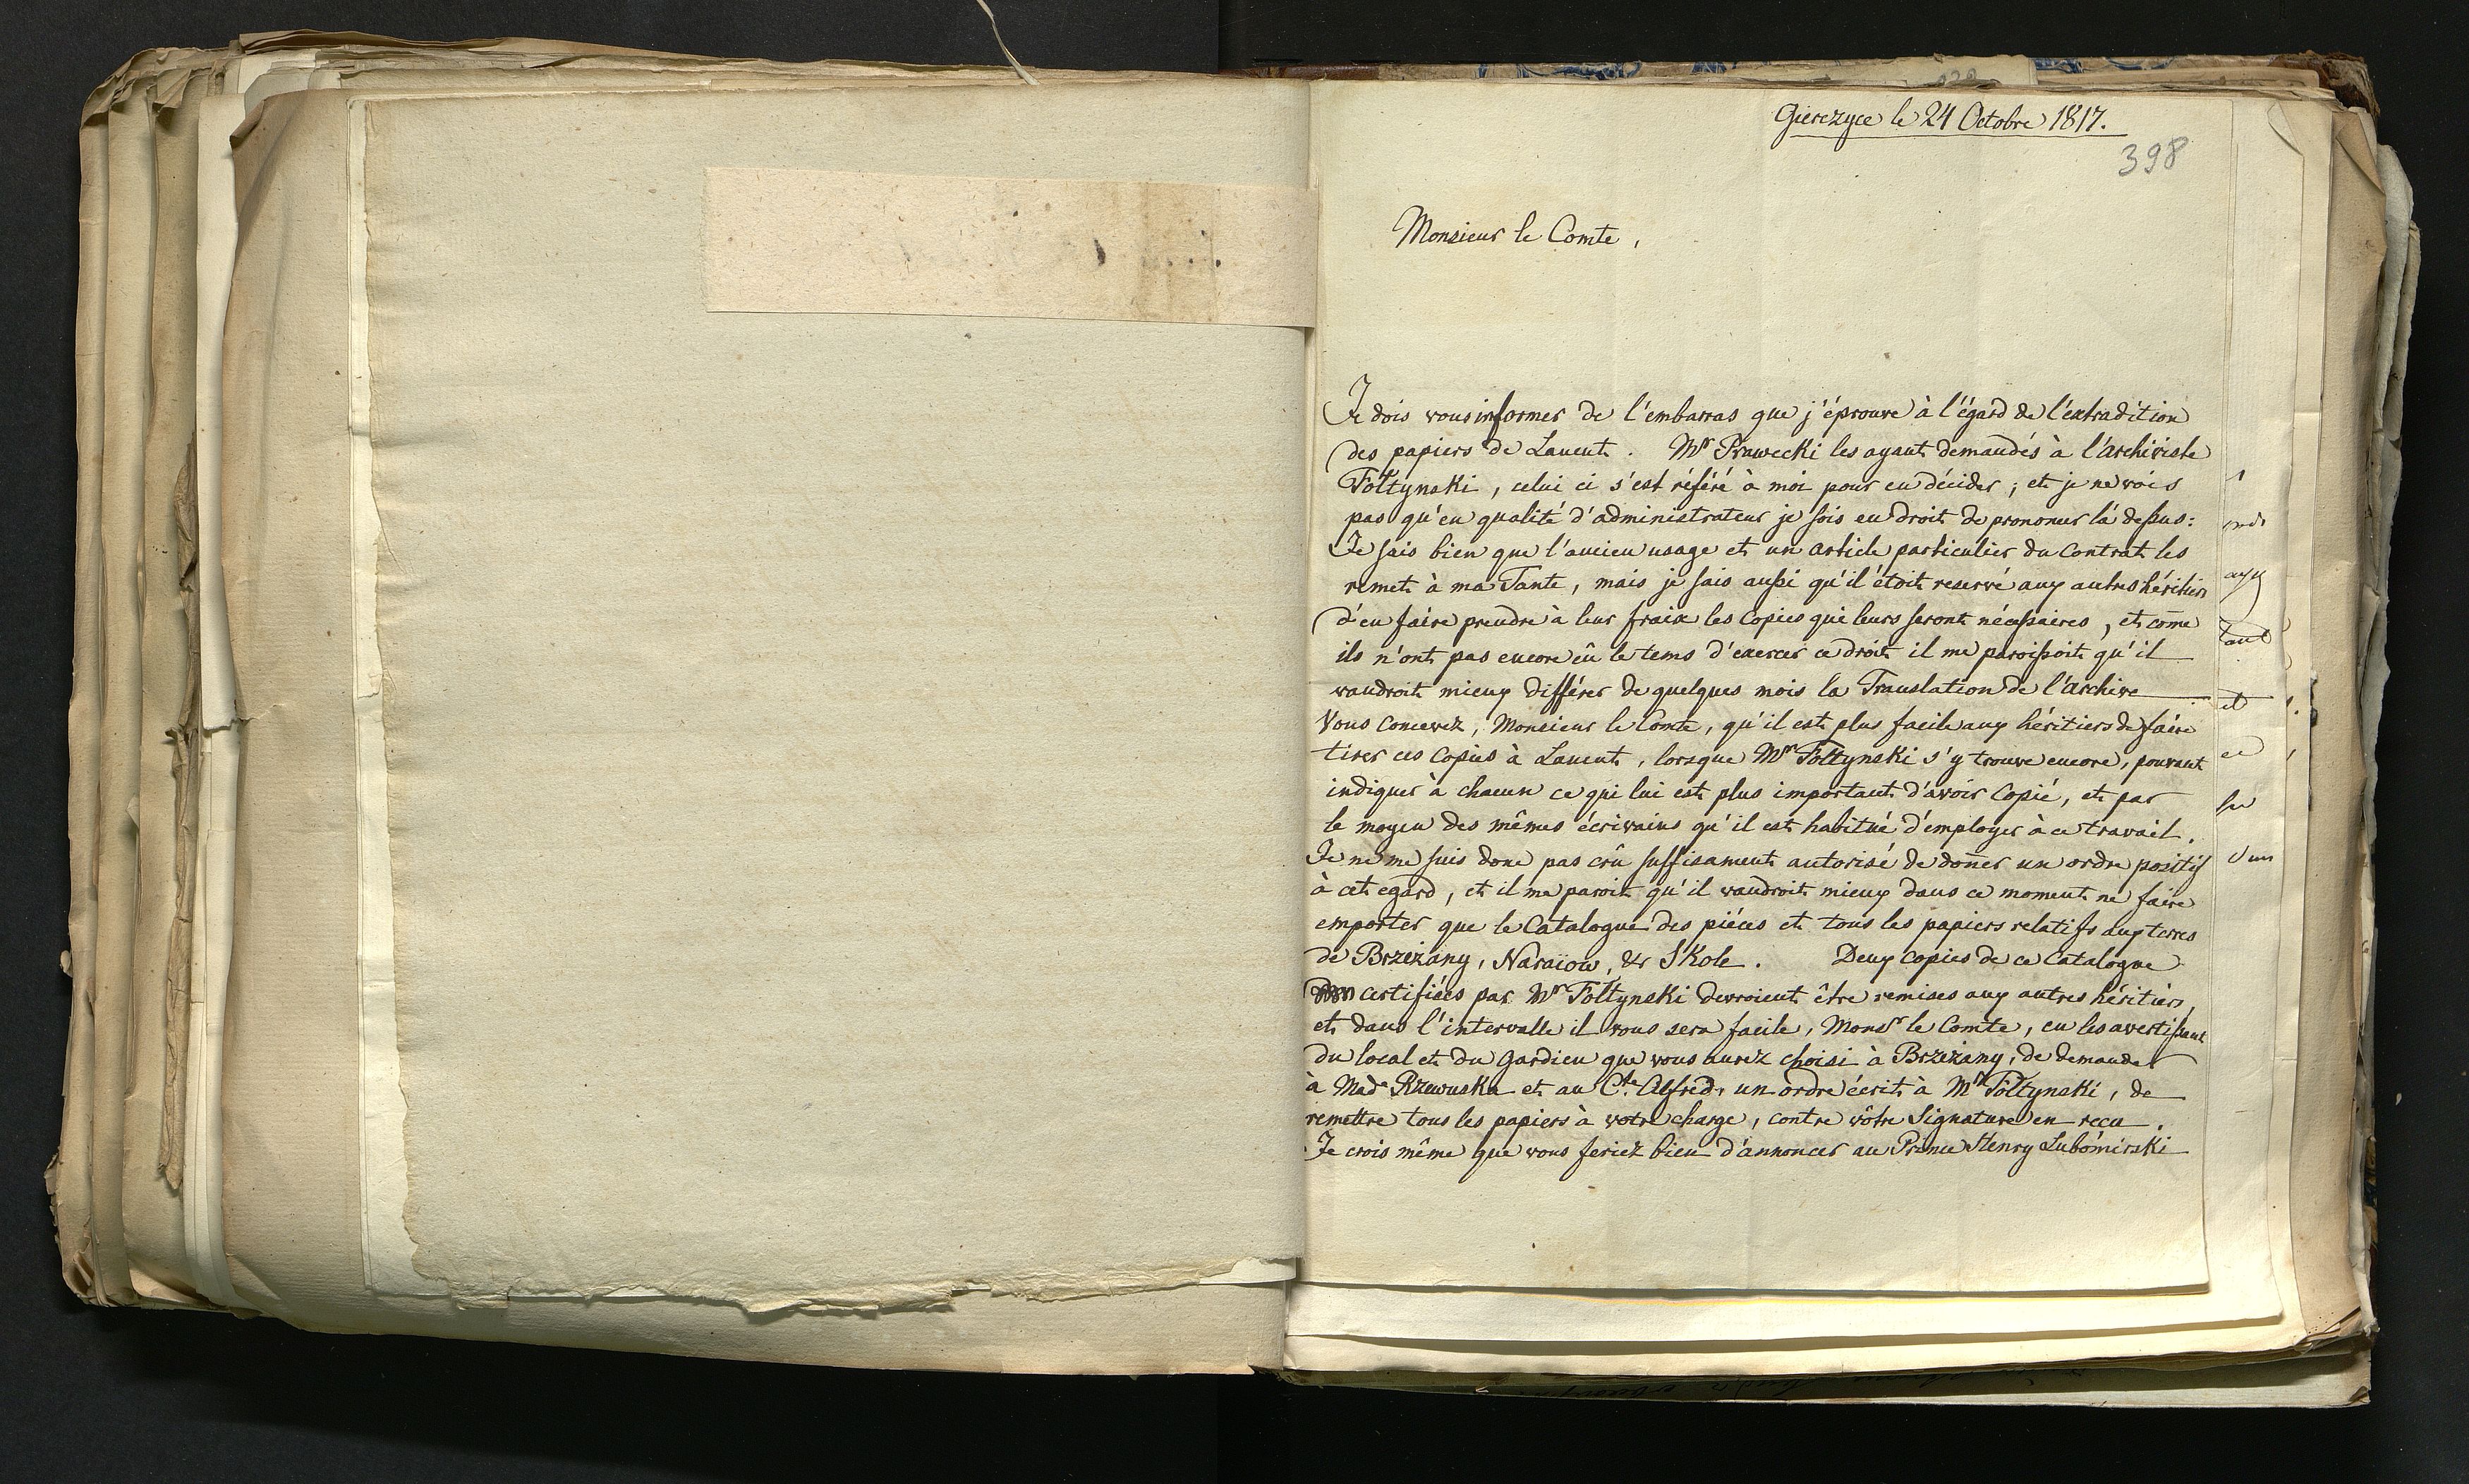 Gierczyce le 24 Octobre 1817.
398
Monsieur le Comte,
Je dois vous informer de l'embarras que j'éprouve à l'égard de l'extradition
des papiers de Lancut. Mr Prawecki les ayant demandés à l'archiviste
Fołtynski, celui ci s'est référé à moi pour en décider; et je ne vois
pas qu'en qualité d'administrateur je sois en droit de prononcer là dessus:
Je sais bien que l'ancien usage et un article particulier du Contrat les
remet à ma Tante, mais je sais aussi qu'il étoit reservé aux autres héritiers
d'en faire prendre à leur fraix les Copies qui leurs seront nécessaires, et come
ils n'ont pas encore eû le tems d'exercer ce droit il me paroissoit qu'il
vaudroit mieux différer de quelques mois la Translation de l'archive
Vous concevez, Monsieur le Comte, qu'il est plus facile aux héritiers de faire
tirer ces Copies à Lancut, lorsque Mr Fołtynski s'y trouve encore, pouvant
indiquer à chacun ce qui lui est plus important d'avoir Copié, et par
le moyen des mêmes écrivains qu'il est habitué d'employer à ce travail.
Je ne me suis donc pas crû suffisament autorisé de doñer un ordre positif
à cet egard, et il me paroit qu'il vaudroit mieux dans ce moment ne faire
emporter que le Catalogue des piéces et tous les papiers relatifs aux terres
de Brzeżany, Naraïow, & Skole. Deux Copies de ce Catalogue
certifiées par Mr Fołtynski devroient être remises aux autres héritiers,
et dans l'intervalle il vous sera facile, Monsr le Comte, en les avertissant
du local et du Gardien que vous aurez choisi à Brzeżany, de demander
à Made Rzewuska et au Cte Alfred, un ordre écrit à Mr Fołtynski, de
remettre tous les papiers à votre charge, contre vôtre Signature en reçu.
Je crois même que vous feriez bien d'annoncer au Prince Henry Lubomirski
tant
et
ce